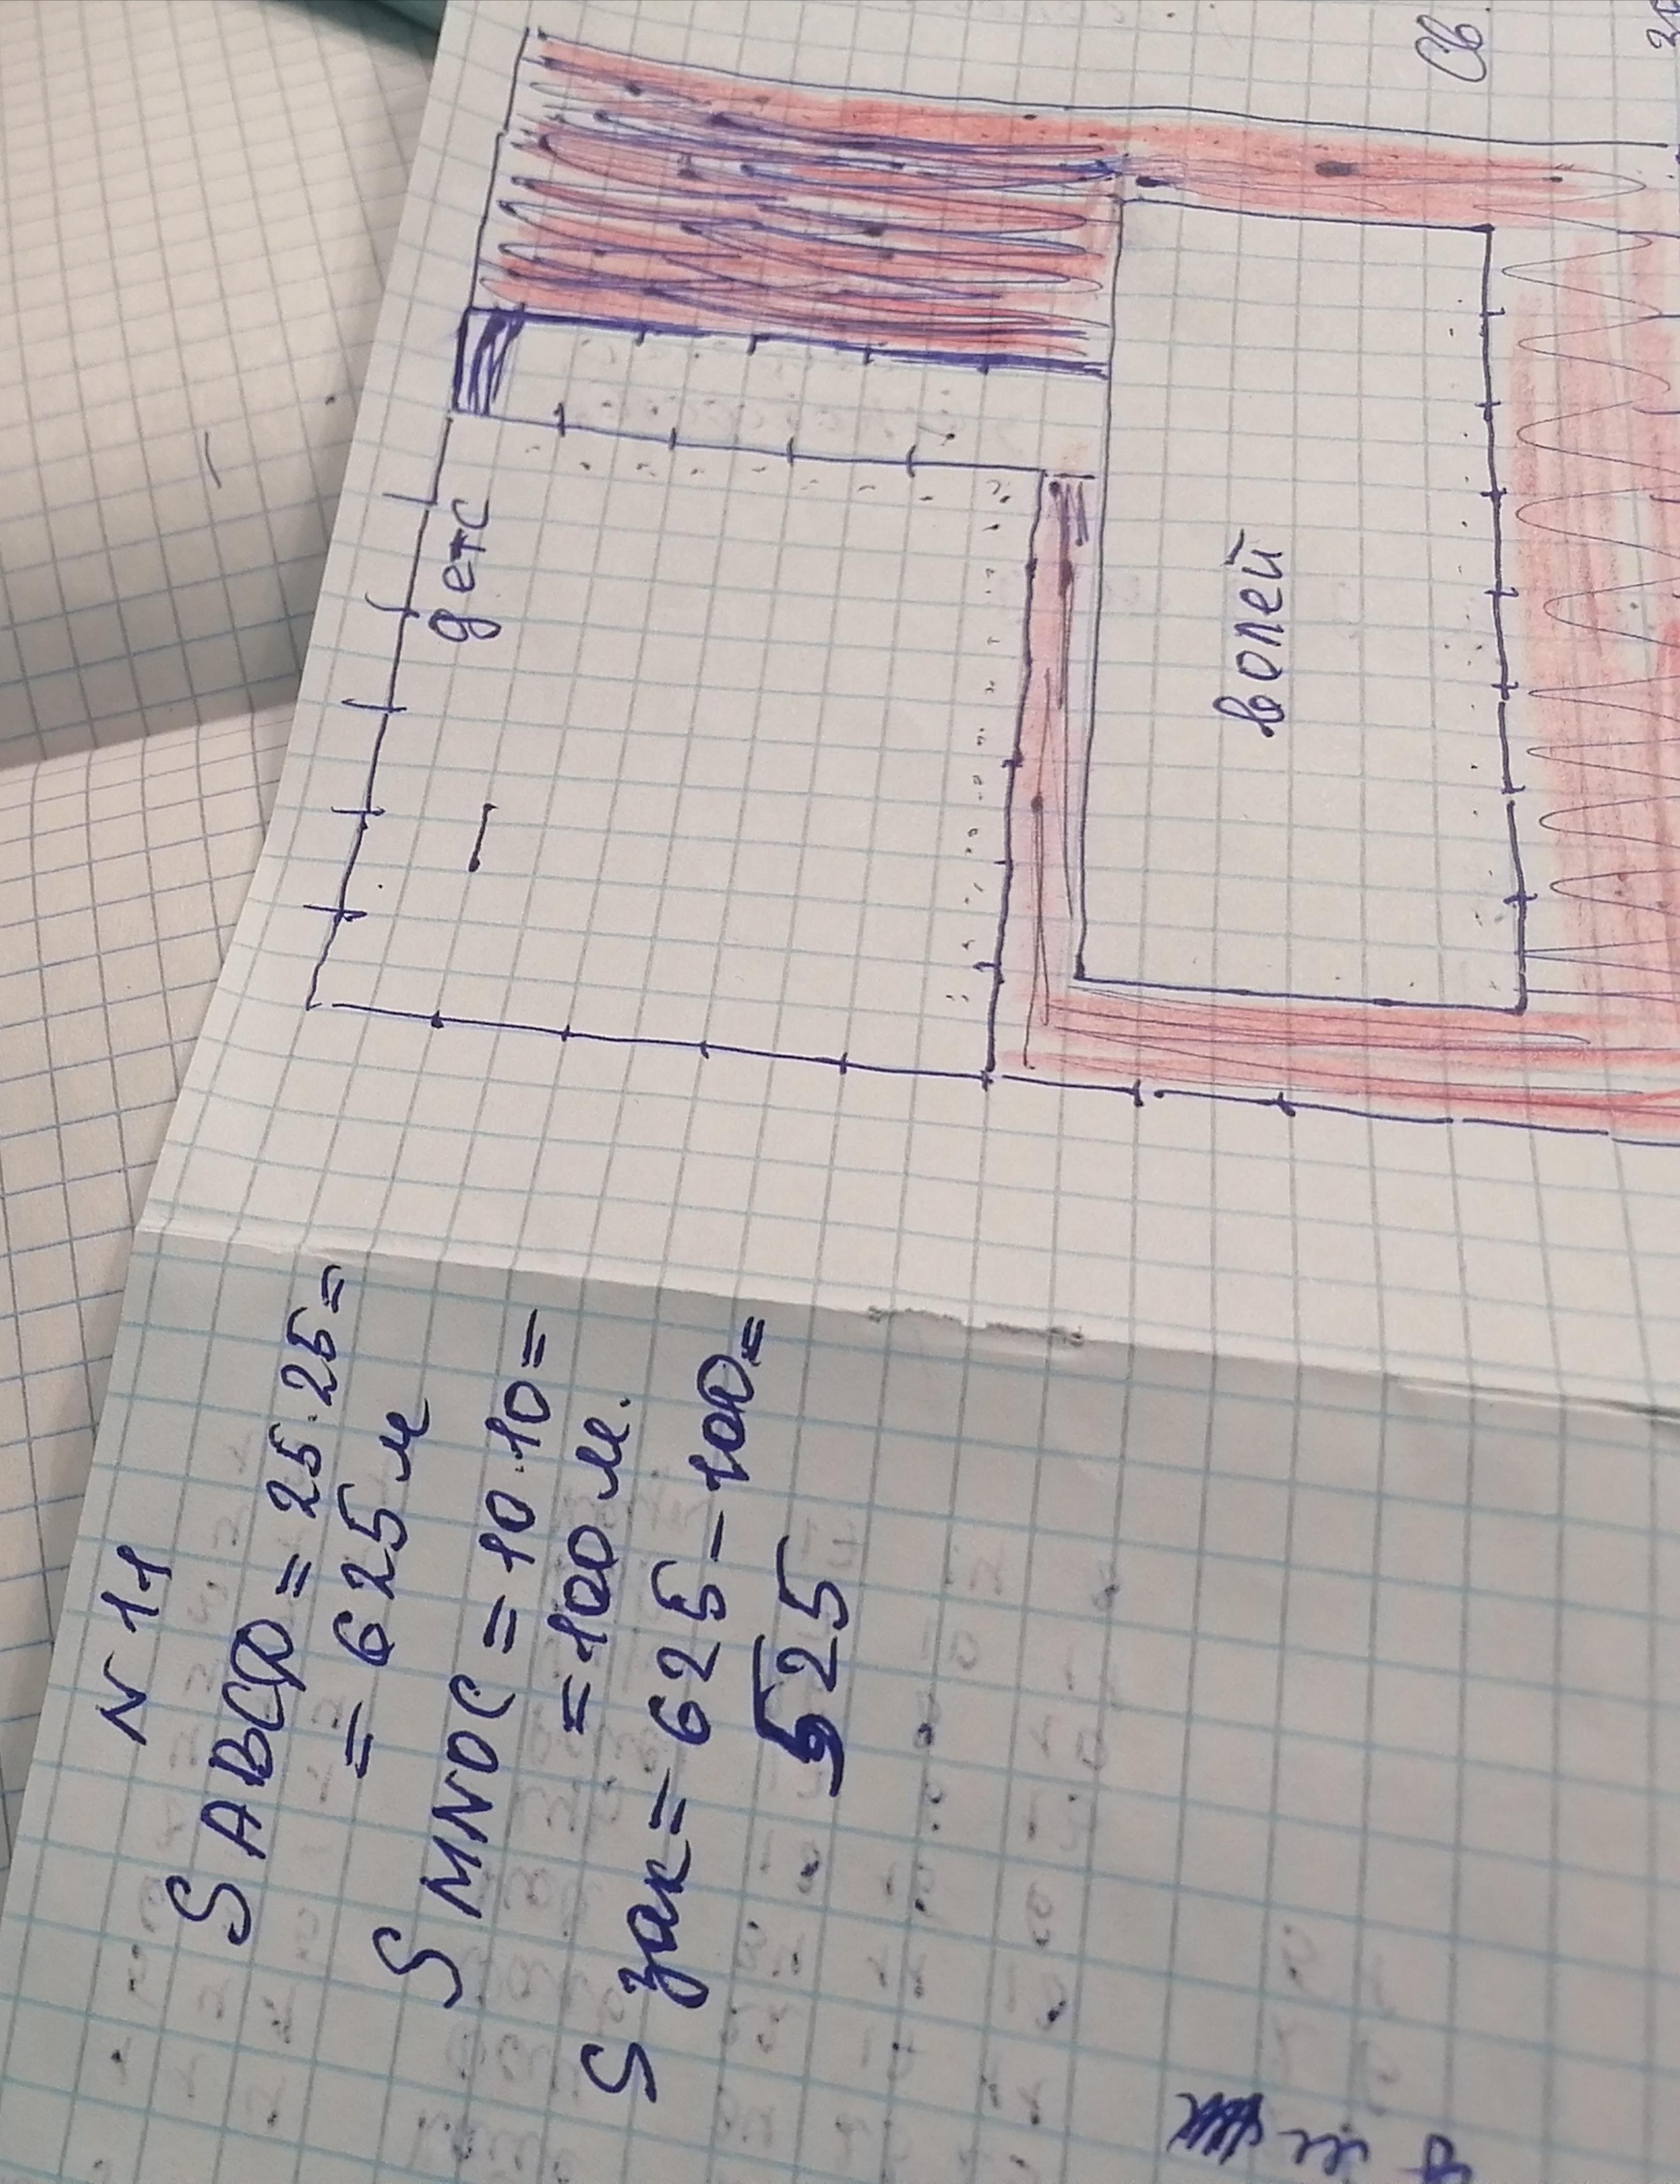 N 11
S ABCD = 25 · 25 =
= 625 м
S MNOC = 10 · 10 =
= 100 м.
S зак = 625 - 100 =
525
детс
волей
Св.